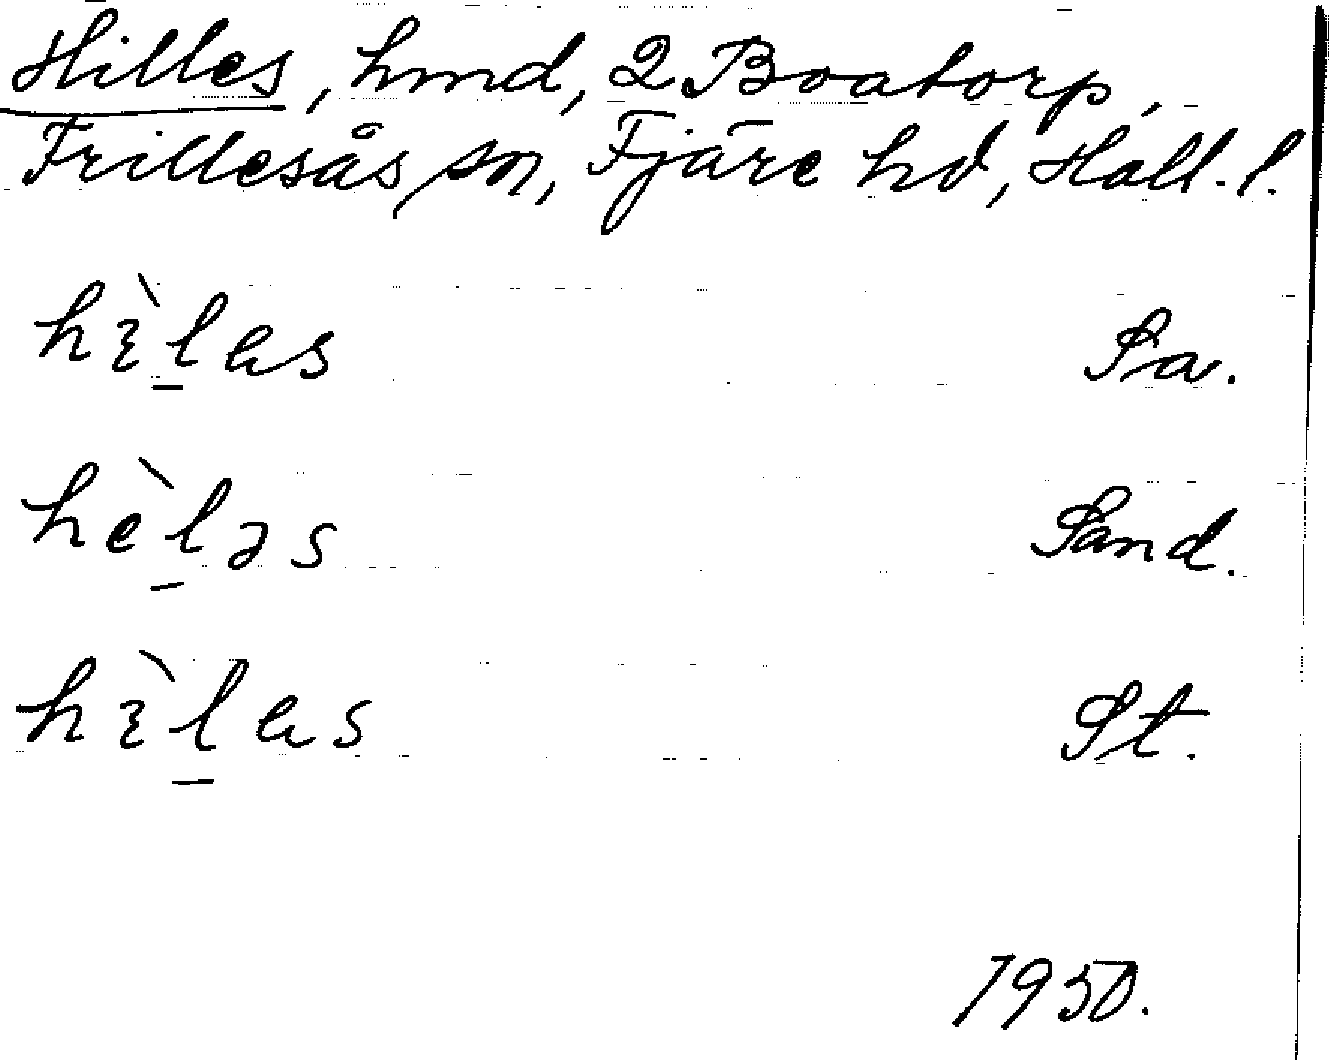 Hilles, hmd, 2 Boatorp,
Frillesås sn, Fjäre hd, Hall. l.
hɪ̀l̠ɐs Sa.
hèl̠əs Sand.
hɪ̀l̠ɐs St.
1950.